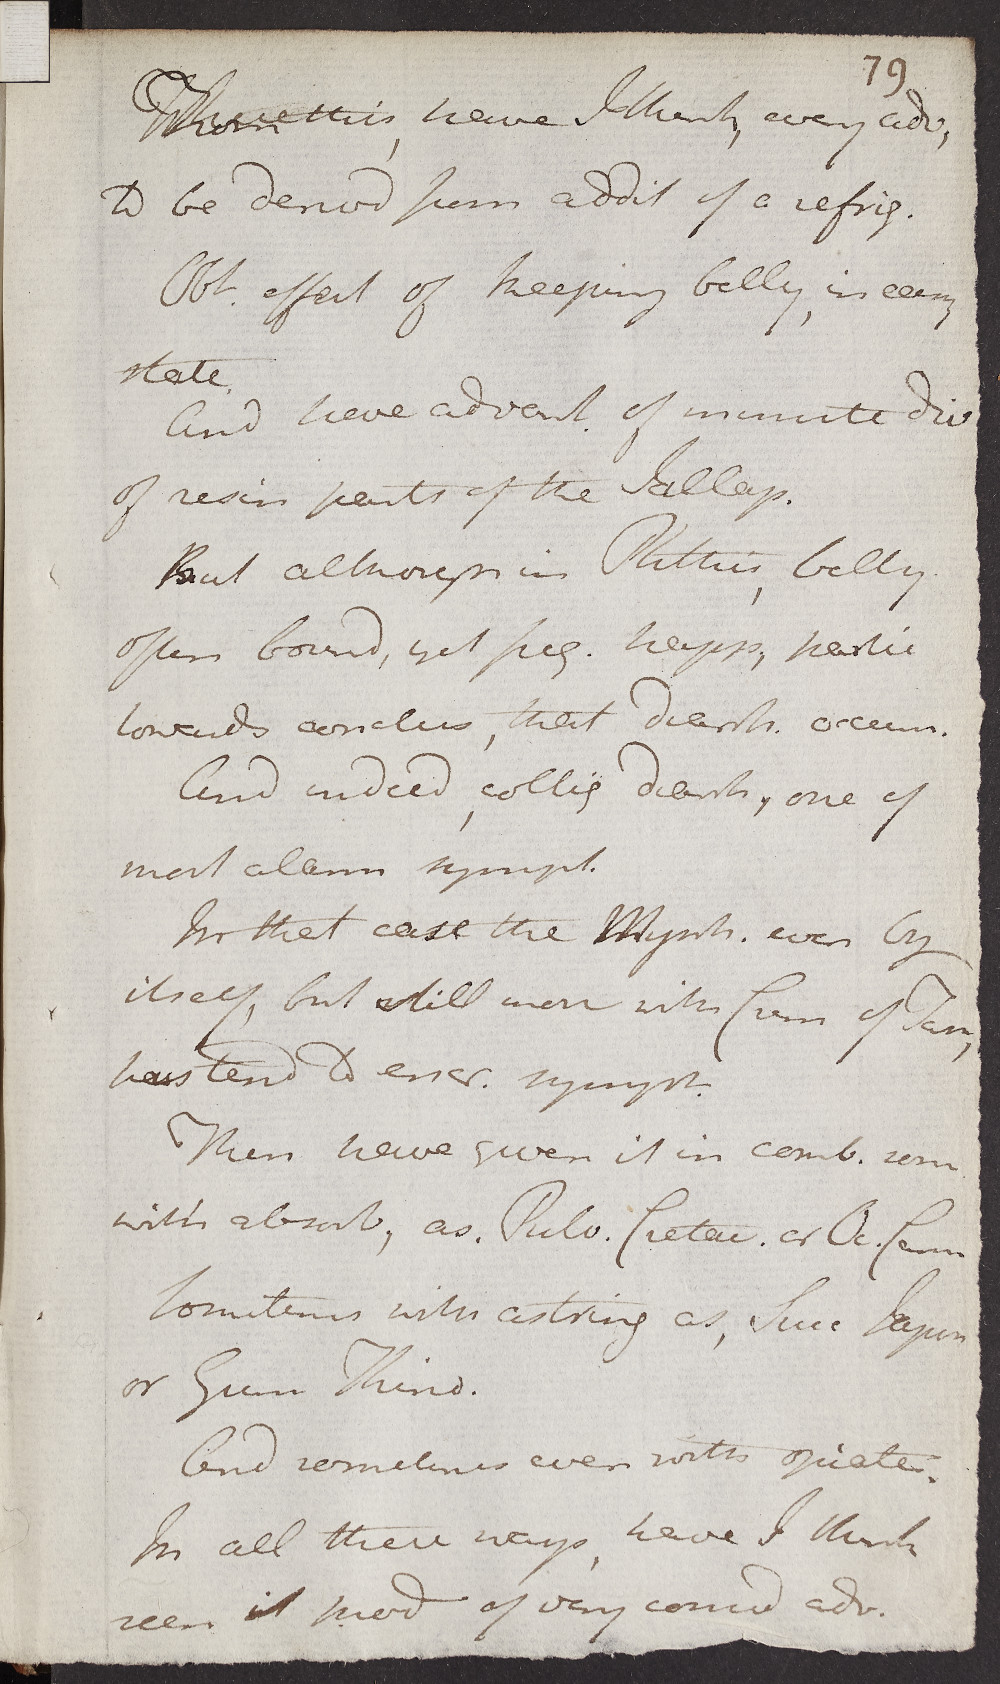 79
From this, have I think, every adv,
to be derivd from addit of a refrig.
Obt. effect of keeping belly, in easy
state.
And have advant. of minute div
of resin parts of the Jallap.
But although in Phthisis, belly
often bound, yet freq. happs, partic
towards conclus, that diarrh. occurs.
And indeed, colliq diarrh, one of
most alarm sympt.
In that case the Myrrh. even by
itself, but still more with Crem of Tart,
has tend to encr. sympt.
Then have given it in comb. som
with absorb, as. Pulv. Cretac. or Oc. Canc
Sometimes with astring as, Succ Japon
or Gum Kino.
And sometimes even with opiates.
In all these ways, have I think
seen it prod of very consid adv.